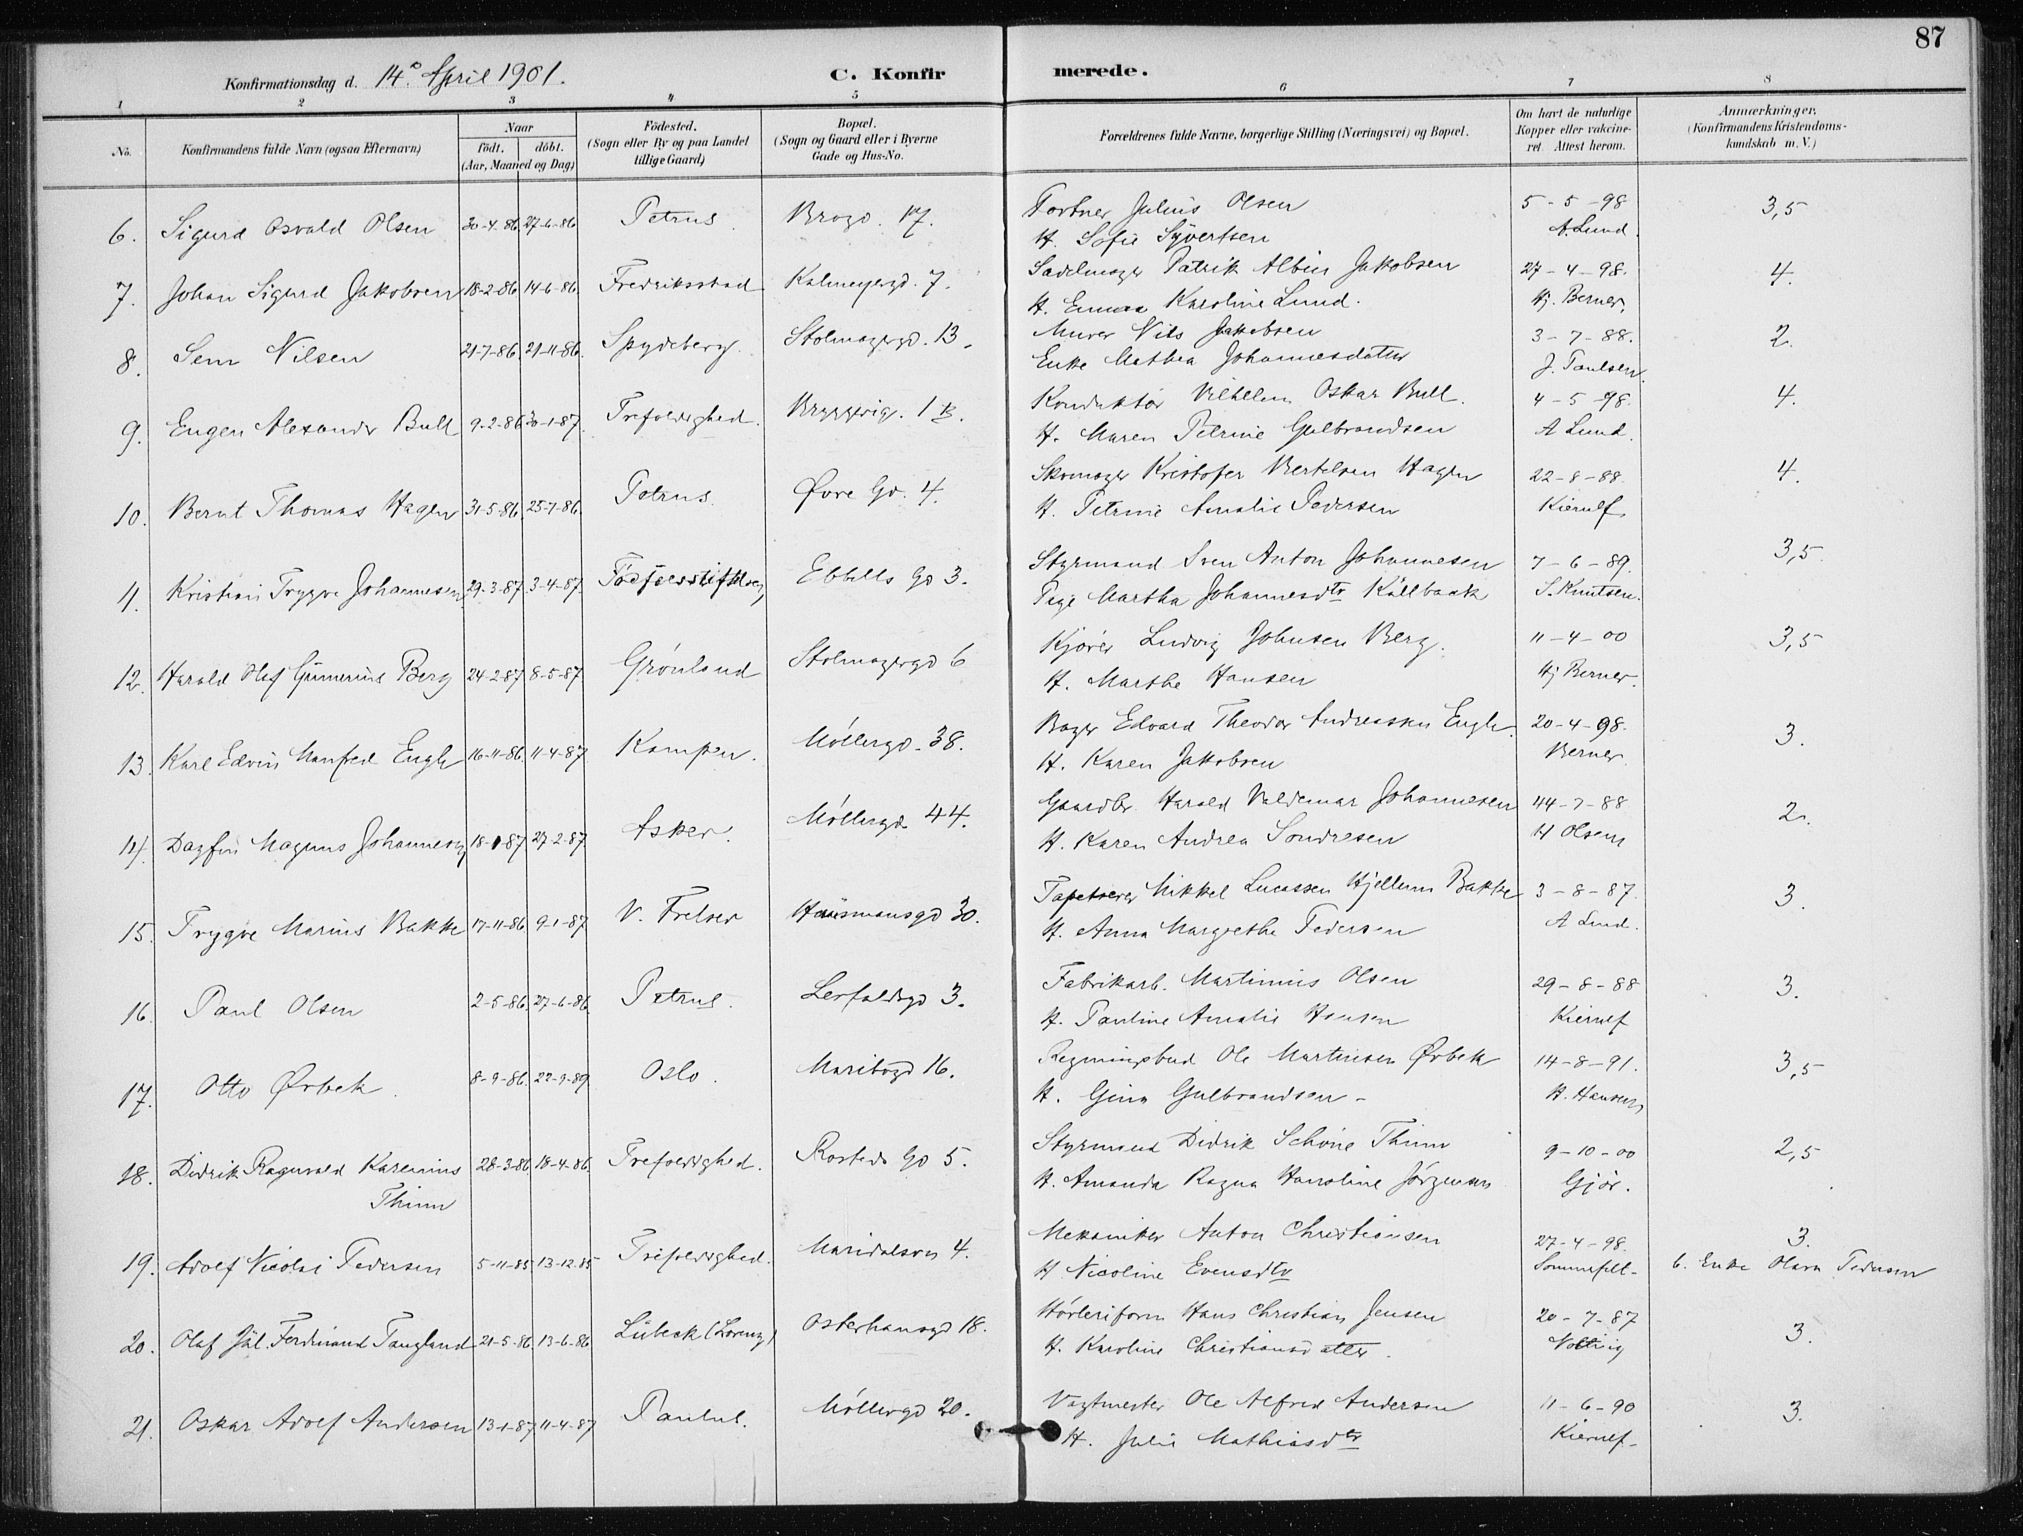 87
Konfirmationsdag d. 14de April 1901. C. Konfirmerede.
1 2 3 4 5 6 7 8
No. Konfirmandens fulde Navn (ogsaa Efternavn) Naar født. døbt. (Aar, Maaned og Dag) Fødested. (Sogn eller By og paa Landet tillige Gaard) Bopæl. (Sogn og Gaard eller i Byerne Gade og Hus-No. Forældrenes fulde Navne, borgerlige Stilling (Næringsvei) og Bopæl. Om havt de naturlige Kopper eller vakcineret. Attest herom. Anmærkninger. (Konfirmandens Kristendomskundskab m. V.)
6. Sigurd Osvald Olsen 30-4-86. 27-6-86 Petrus. Brogd. 17. Julius Olsen 5-5-98 3,5
H. Sofie Syvertsen A. Lund.
7. Johan Sigurd Jakobsen 18-2-86. 14-6-86. Fredriksstad Kalmeyergd. 7. Sadelmager Patrik Albin Jakobsen 27-4-98. 4.
H. Emma Karoline Lund. Hj. Berner.
8. Sem Nilsen 21-7-86. 21-11-86. Spydeberg. Stolmagergd. 13. Murer Nils Jakobsen 3-7-88. 2.
Enke Mathea Johannesdatter J. Paulsen.
9. Eugen Alexander Bull 9-2-86 30-1-87. Trefoldighed. Bryggerig. 1 B. Konduktør Vilhelm Oskar Bull. 4-5-98. 4.
H. Maren Petrine Gulbrandsen A Lund.
10. Bernt Thomas Hagen 31-5-86. 25-7-86. Petrus. Øvre Gd. 4. Skomager Kristofer Bertelsen Hagen 22-8-88. 4.
H. Petrine Amalie Pedersen Kierulf
11. Kristian Trygve Johannesen 29-3-87. 3-4-87. Fødselsstiftelsen Ebbells Gd 3. Styrmand Sven Anton Johannesen 7-6-89. 3,5
Pige Martha Johannesdtr Källbaak S. Knutsen.
12. Harald Olaf Gunerius Berg 24-2-87 8-5-87. Grønland Stolmagergd 6 Kjører Ludvig Johnsen Berg. 11-4-00 3,5
H. Marthe Hansen Hj Berner.
13. Karl Edvin Manfred Engh 16-11-86. 11-4-87 Kampen. Møllergd. 38. Bager Edvard Theodor Andreassen Engh. 20-4-98. 3.
H. Karen Jakobsen Berner.
14. Dagfin Magnus Johannesen 18-1-87 27-2-87. Asker. Møllergd. 44. Gaardbr. Harald Valdemar Johannesen 14-7-88 2.
H. Karen Andrea Sondresen H Olsen
15. Trygve Marius Bakke 17-11-86 9-1-87 V. Frelser Hausmansgd 30. Tapetserer Mikkel Lucassen Hjellum Bakke 3-8-87. 3.
H. Anna Margrethe Pedersen A Lund.
16. Paul Olsen 2-5-86. 27-6-86. Petrus. Lerfaldsgd 3. Fabrikarb. Martinius Olsen 29-8-88 3.
H. Pauline Amalie Hansen Kierulf
17. Otto Ørbek. 8-9-86. 22-9-89 Oslo. Maribogd 16. Regningsbud Ole Martinsen Ørbek 14-8-91. 3,5
H. Gina Gulbrandsen - H. Hansen
18. Didrik Ragnvald Karenius Thinn 28-3-86 18-4-86. Trefoldighed. Rosteds Gd 5. Styrmand Didrik Schöne Thinn 9-10-00 2,5
H. Amanda Ragna Hansine Jørgensen Gjør.
19. Adolf Nicolai Pedersen 5-11-85 13-12-85 Trefoldighed. Maridalsvn 4. Mekaniker Anton Christiansen 27-4-98. 3.
H Nicoline Evensdtr Sommerfelt- b. Enke Olava Pedersen
20. Olaf Jül. Ferdinand Tangland 21-5-86 13-6-86 Lübeck (Lorenz) Osterhausgd 18. Hans Christian Jensen 20-7-87 3.
H. Karoline Christiansdatter. Nolting
21. Oskar Adolf Andersen 13-1-87 11-4-87 Paulus. Møllergd 20. Vagtmester Ole Alfred Andersen 11-6-90 3.
H. Julie Mathiasdtr Kierulf-